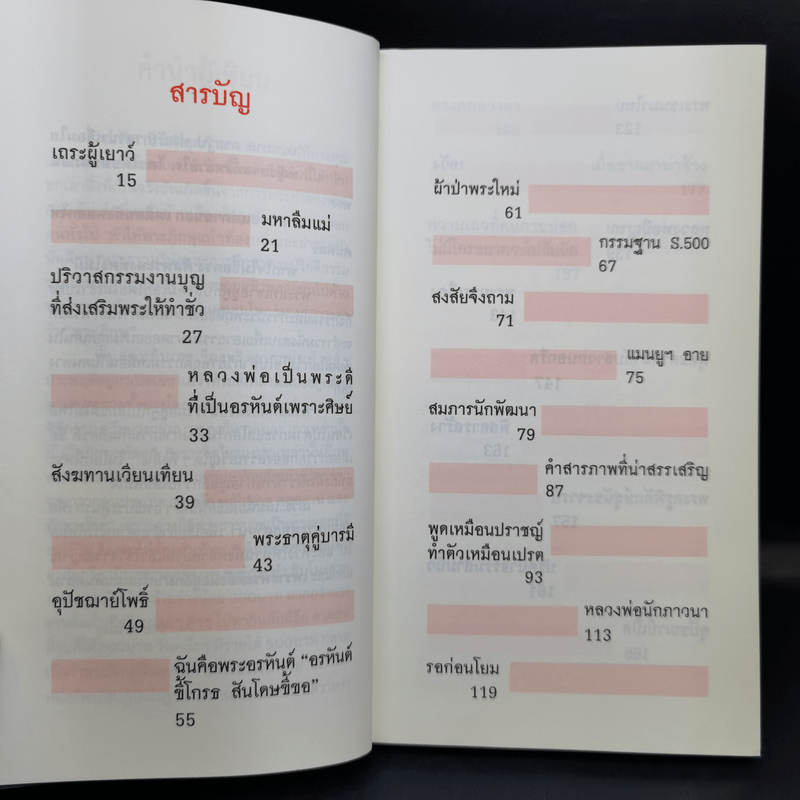 สารบัญ
เถระผู้เยาว์
15
มหาลืมแม่
21
ปริวาสกรรมงานบุญ
ที่ส่งเสริมพระให้ทำชั่ว
27
หลวงพ่อเป็นพระดี
ที่เป็นอรหันต์เพราะศิษย์
33
สังฆทานเวียนเทียน
39
พระธาตุคู่บารมี
43
อุปัชฌาย์โพธิ์
49
ฉันคือพระอรหันต์ "อรหันต์
ขี้โกรธ สันโดษขี้ขอ"
55
ผ้าป่าพระใหม่
61
กรรมฐาน S.500
67
สงสัยจึงถาม
71
แมนยูฯ อาย
75
สมภารนักพัฒนา
79
คำสารภาพที่น่าสรรเสริญ
87
พูดเหมือนปราชญ์
ทำตัวเหมือนเปรต
93
หลวงพ่อนักภาวนา
113
รอก่อนโยม
119